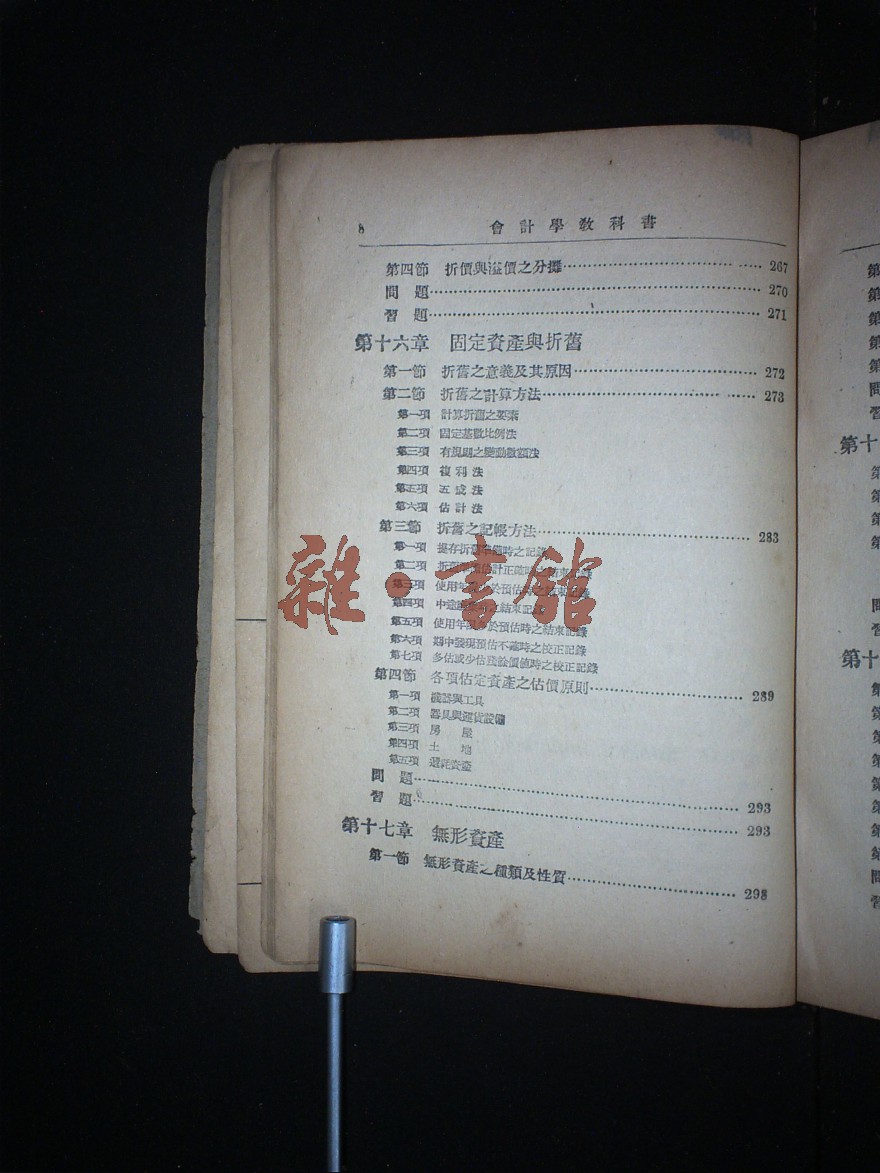 8 會計學教科書
第四節 折價與溢價之分攤 267
問 題 270
習 題 271
第十六章 固定資產與折舊
第一節 折舊之意義及其原因 272
第二節 折舊之計算方法 273
第一項 計算折舊之要素
第二項 固定基數比例法
第三項 有規則之變動數額法
第四項 複利法
第五項 五成法
第六項 估計法
第三節 折舊之記帳方法 283
第一項 提存折舊準備時之記錄
第二項 折舊 估計正確時之結束記錄
第三項 使用年限少於預估時之結束記錄
第四項 中途 之結束記錄
第五項 使用年限多於預估時之結束記錄
第六項 期中發現預估不確時之校正記錄
第七項 多估或少估殘餘價值時之校正記錄
第四節 各項估定資產之估價原則 289
第一項 機器與工具
第二項 器具與運貨設備
第三項 房 屋
第四項 土 地
第五項 遞耗資產
問 題 293
習 題 293
第十七章 無形資產
第一節 無形資產之種類及性質 298
雜·書館